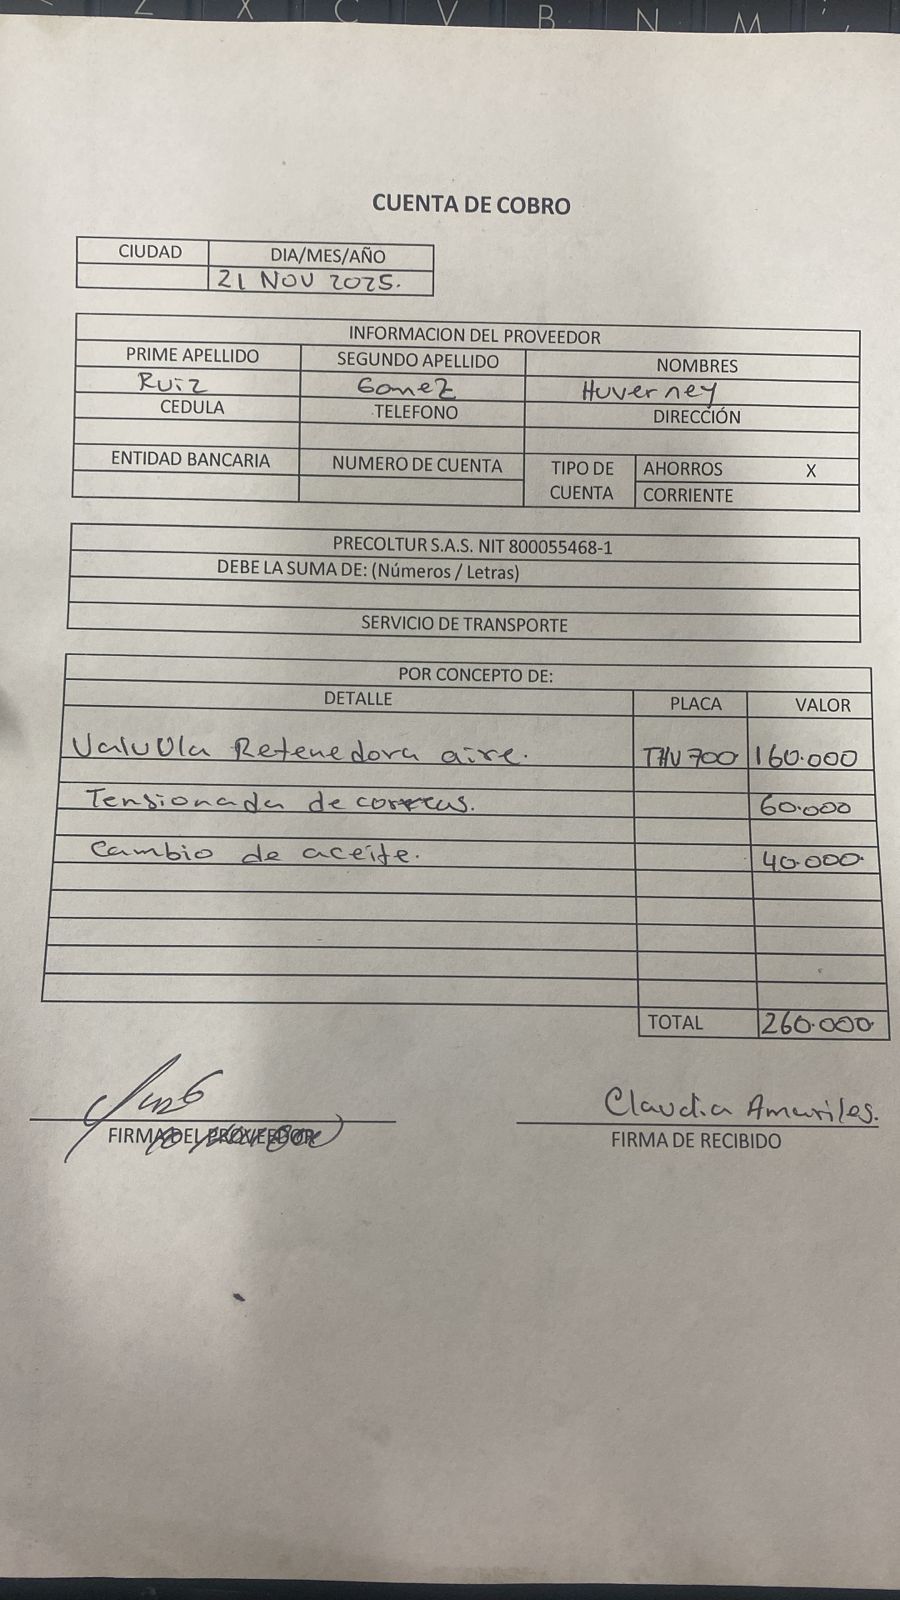 Z X C V B N M ,
CUENTA DE COBRO
CIUDAD DIA/MES/AÑO
21 NOV 2025.
INFORMACION DEL PROVEEDOR
PRIME APELLIDO SEGUNDO APELLIDO NOMBRES
Ruiz Gomez Huverney
CEDULA TELEFONO DIRECCIÓN
ENTIDAD BANCARIA NUMERO DE CUENTA TIPO DE CUENTA AHORROS X
CORRIENTE
PRECOLTUR S.A.S. NIT 800055468-1
DEBE LA SUMA DE: (Números / Letras)
SERVICIO DE TRANSPORTE
POR CONCEPTO DE:
DETALLE PLACA VALOR
Valvula Retenedora aire. THV 700 160.000
Tensionada de correas. 60.000
Cambio de aceite. 40.000
TOTAL 260.000
Claudia Amariles.
FIRMA DEL PROVEEDOR FIRMA DE RECIBIDO